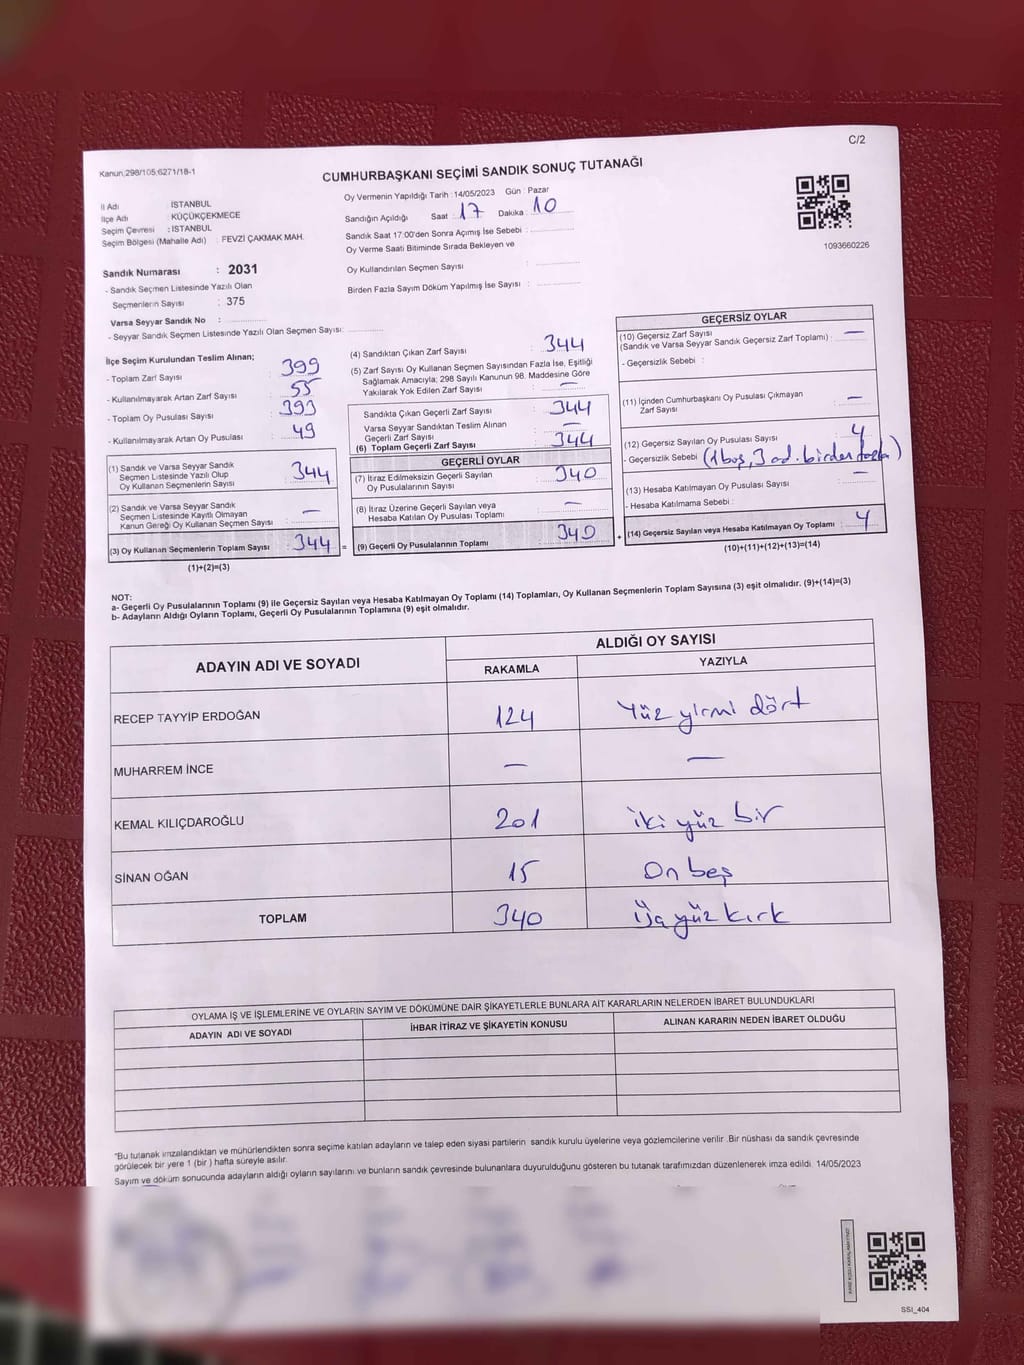 C/2
Kanun,298/105,6271/18-1
CUMHURBAŞKANI SEÇİMİ SANDIK SONUÇ TUTANAĞI
İl Adı : İSTANBUL
İlçe Adı : KÜÇÜKÇEKMECE
Seçim Çevresi : İSTANBUL
Seçim Bölgesi (Mahalle Adı) : FEVZİ ÇAKMAK MAH.
Sandık Numarası : 2031
- Sandık Seçmen Listesinde Yazılı Olan
Seçmenlerin Sayısı : 375
Varsa Seyyar Sandık No :
- Seyyar Sandık Seçmen Listesinde Yazılı Olan Seçmen Sayısı:
Oy Vermenin Yapıldığı Tarih : 14/05/2023 Gün : Pazar
Sandığın Açıldığı Saat : 17 Dakika : 10
Sandık Saat 17:00'den Sonra Açımış İse Sebebi :
Oy Verme Saati Bitiminde Sırada Bekleyen ve
Oy Kullandırılan Seçmen Sayısı :
Birden Fazla Sayım Döküm Yapılmış İse Sayısı :
1093660226
İlçe Seçim Kurulundan Teslim Alınan;
- Toplam Zarf Sayısı : 399
- Kullanılmayarak Artan Zarf Sayısı : 55
- Toplam Oy Pusulası Sayısı : 393
- Kullanılmayarak Artan Oy Pusulası : 49
(1) Sandık ve Varsa Seyyar Sandık
Seçmen Listesinde Yazılı Olup
Oy Kullanan Seçmenlerin Sayısı : 344
(2) Sandık ve Varsa Seyyar Sandık
Seçmen Listesinde Kayıtlı Olmayan
Kanun Gereği Oy Kullanan Seçmen Sayısı : —
(3) Oy Kullanan Seçmenlerin Toplam Sayısı : 344 =
(1)+(2)=(3)
(4) Sandıktan Çıkan Zarf Sayısı : 344
(5) Zarf Sayısı Oy Kullanan Seçmen Sayısından Fazla İse, Eşitliği
Sağlamak Amacıyla; 298 Sayılı Kanunun 98. Maddesine Göre
Yakılarak Yok Edilen Zarf Sayısı : —
Sandıkta Çıkan Geçerli Zarf Sayısı : 344
Varsa Seyyar Sandıktan Teslim Alınan
Geçerli Zarf Sayısı : —
(6) Toplam Geçerli Zarf Sayısı : 344
GEÇERLİ OYLAR
(7) İtiraz Edilmeksizin Geçerli Sayılan
Oy Pusulasının Sayısı : 340
(8) İtiraz Üzerine Geçerli Sayılan veya
Hesaba Katılan Oy Pusulası Toplamı : —
(9) Geçerli Oy Pusulalarının Toplamı : 340 +
GEÇERSİZ OYLAR
(10) Geçersiz Zarf Sayısı
(Sandık ve Varsa Seyyar Sandık Geçersiz Zarf Toplamı) : —
- Geçersizlik Sebebi :
(11) İçinden Cumhurbaşkanı Oy Pusulası Çıkmayan
Zarf Sayısı : —
(12) Geçersiz Sayılan Oy Pusulası Sayısı : 4
- Geçersizlik Sebebi (1 boş, 3 ad. birden fazla)
(13) Hesaba Katılmayan Oy Pusulası Sayısı : —
- Hesaba Katılmama Sebebi :
(14) Geçersiz Sayılan veya Hesaba Katılmayan Oy Toplamı : 4
(10)+(11)+(12)+(13)=(14)
NOT:
a- Geçerli Oy Pusulalarının Toplamı (9) ile Geçersiz Sayılan veya Hesaba Katılmayan Oy Toplamı (14) Toplamları, Oy Kullanan Seçmenlerin Toplam Sayısına (3) eşit olmalıdır. (9)+(14)=(3)
b- Adayların Aldığı Oyların Toplamı, Geçerli Oy Pusulalarının Toplamına (9) eşit olmalıdır.
ADAYIN ADI VE SOYADI
ALDIĞI OY SAYISI
RAKAMLA YAZIYLA
RECEP TAYYİP ERDOĞAN 124 Yüz yirmi dört
MUHARREM İNCE — —
KEMAL KILIÇDAROĞLU 201 iki yüz bir
SİNAN OĞAN 15 On beş
TOPLAM 340 Üç yüz kırk
OYLAMA İŞ VE İŞLEMLERİNE VE OYLARIN SAYIM VE DÖKÜMÜNE DAİR ŞİKAYETLERLE BUNLARA AİT KARARLARIN NELERDEN İBARET BULUNDUKLARI
ADAYIN ADI VE SOYADI İHBAR İTİRAZ VE ŞİKAYETİN KONUSU ALINAN KARARIN NEDEN İBARET OLDUĞU
"Bu tutanak imzalandıktan ve mühürlendikten sonra seçime katılan adayların ve talep eden siyasi partilerin sandık kurulu üyelerine veya gözlemcilerine verilir .Bir nüshası da sandık çevresinde
görülecek bir yere 1 (bir ) hafta süreyle asılır.
Sayım ve döküm sonucunda adayların aldığı oyların sayılarını ve bunların sandık çevresinde bulunanlara duyurulduğunu gösteren bu tutanak tarafımızdan düzenlenerek imza edildi. 14/05/2023
SSI_404